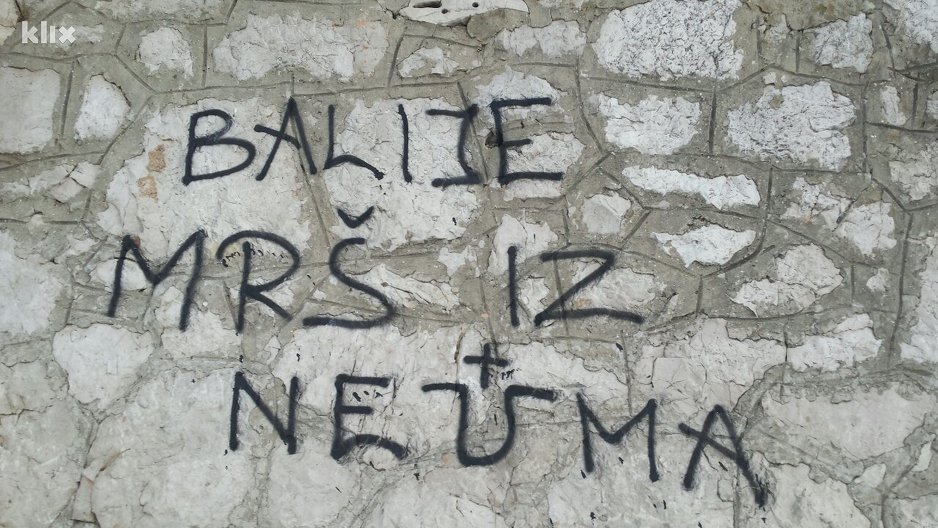 klix
BALIJE
MRŠ IZ
NEUMA